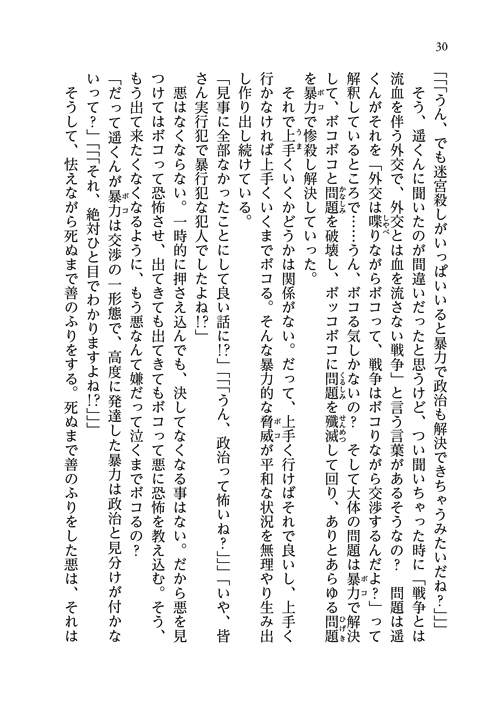 30
「「「うん、でも迷宮殺しがいっぱいいると暴力で政治も解決できちゃうみたいだね？」」」
　そう、遥くんに聞いたのが間違いだったと思うけど、つい聞いちゃった時に「戦争とは
流血を伴う外交で、外交とは血を流さない戦争」と言う言葉があるそうなの？　問題は遥
くんがそれを「外交は喋りながらボコって、戦争はボコりながら交渉するんだよ？」って
解釈しているところで……うん、ボコる気しかないの？　そして大体の問題は暴力で解決
して、ボコボコと問題を破壊し、ボッコボコに問題を殲滅して回り、ありとあらゆる問題
を暴力で惨殺し解決していった。
　それで上手くいくかどうかは関係がない。だって、上手く行けばそれで良いし、上手く
行かなければ上手くいくまでボコる。そんな暴力的な脅威が平和な状況を無理やり生み出
し作り出し続けている。
「見事に全部なかったことにして良い話に!?」「「「うん、政治って怖いね？」」」「いや、皆
さん実行犯で暴行犯な犯人でしたよね!?」
　悪はなくならない。一時的に押さえ込んでも、決してなくなる事はない。だから悪を見
つけてはボコって恐怖させ、出てきても出てきてもボコって悪に恐怖を教え込む。そう、
もう出て来たくなくなるように、もう悪なんて嫌だって泣くまでボコるの？
「だって遥くんが暴力は交渉の一形態で、高度に発達した暴力は政治と見分けが付かな
いって？」「「「それ、絶対ひと目でわかりますよね!?」」」
　そうして、怯えながら死ぬまで善のふりをする。死ぬまで善のふりをした悪は、それは